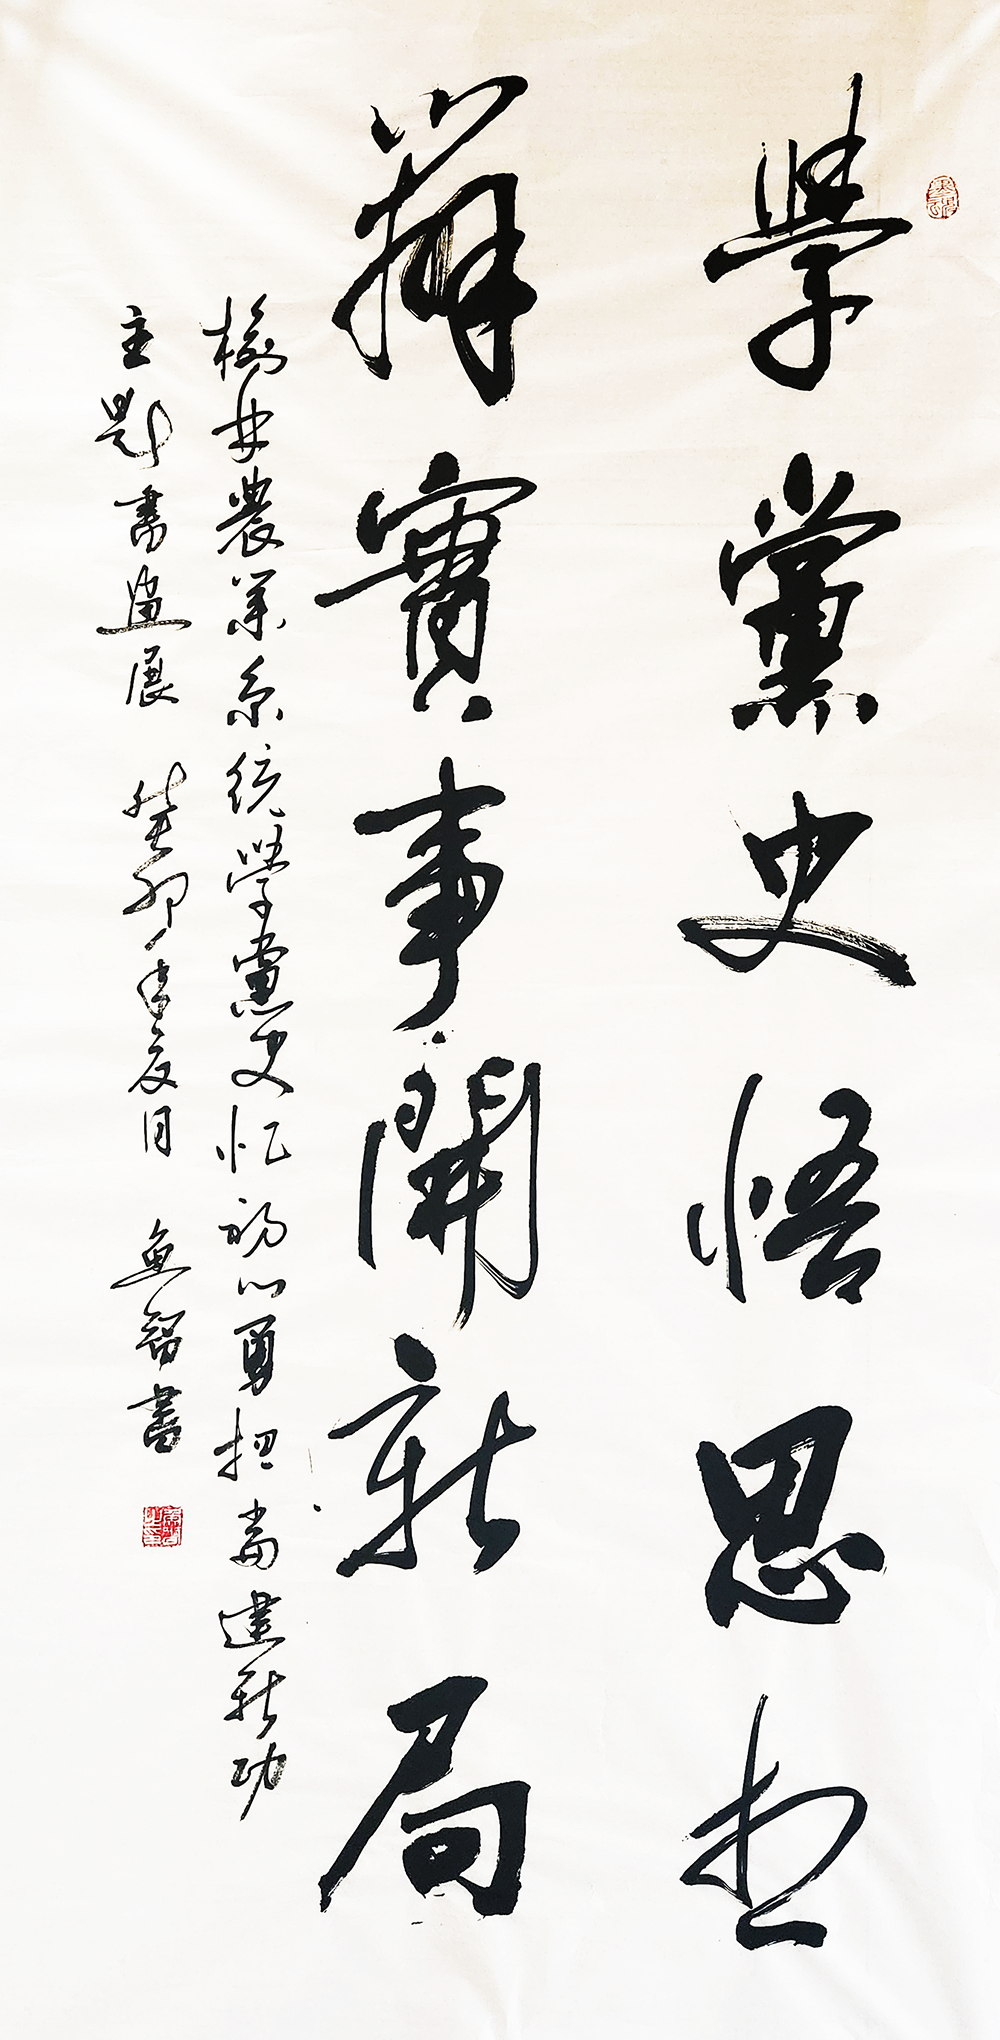 學黨史悟思想
辦實事開新局
榆林農業系統學黨史忆初心勇担當建新功
主題書畫展 癸卯年夏月 魚智書